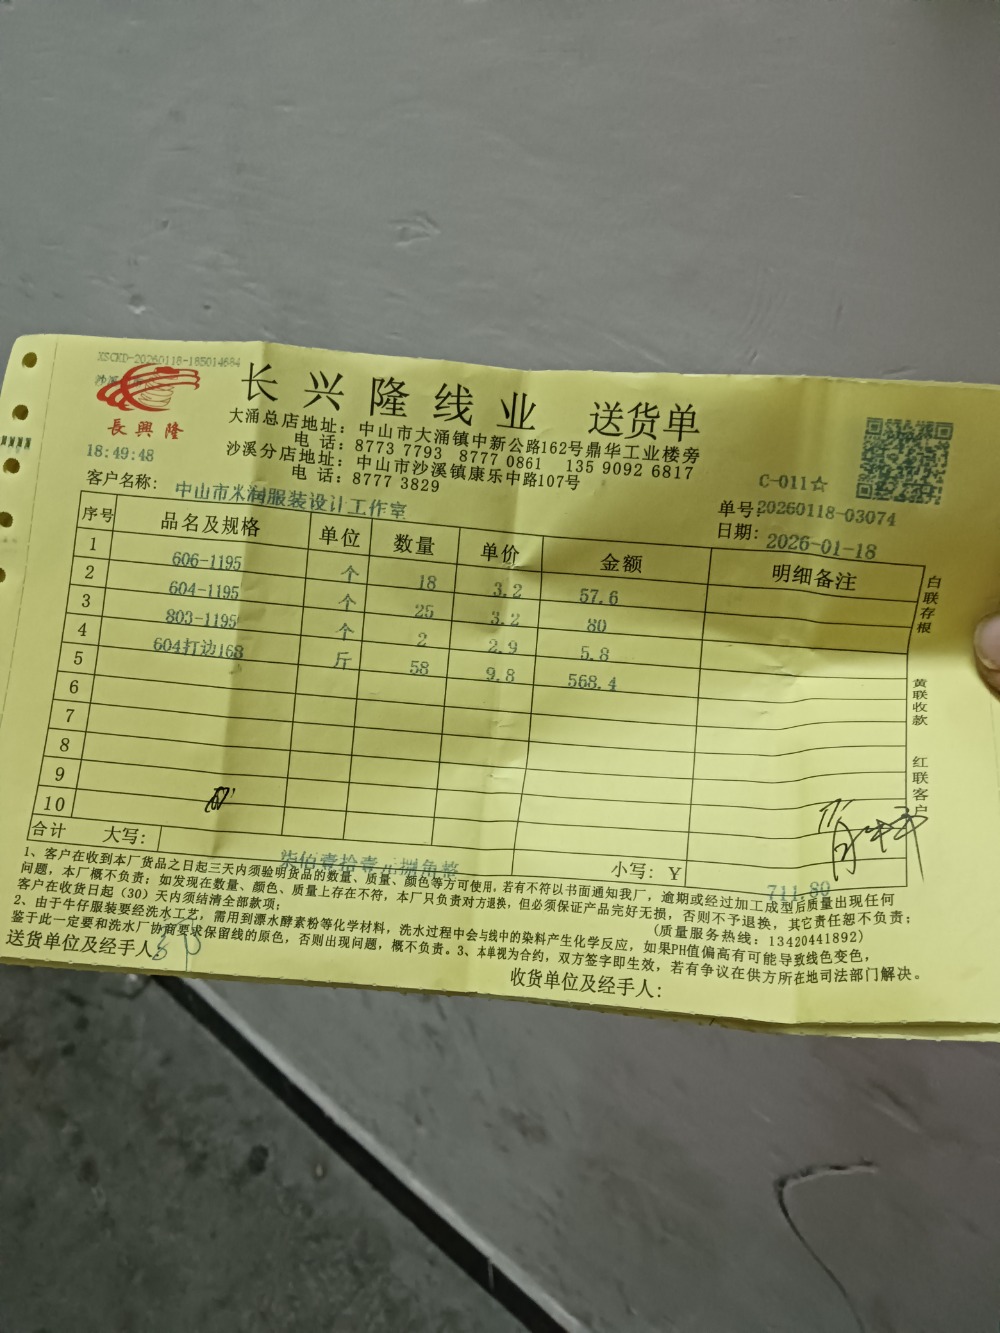 XSCKD-20260118-185014684
長興隆
18:49:48
长兴隆线业 送货单
大涌总店地址：中山市大涌镇中新公路162号鼎华工业楼旁
电 话：8773 7793 8777 0861 135 9092 6817
沙溪分店地址：中山市沙溪镇康乐中路107号
电 话：8777 3829
C-011☆
客户名称：中山市米润服装设计工作室
单号：20260118-03074
日期：2026-01-18
序号 品名及规格 单位 数量 单价 金额 明细备注
1 606-1195 个 18 3.2 57.6
2 604-1195 个 25 3.2 80
3 803-1195 个 2 2.9 5.8
4 604打边168 斤 58 9.8 568.4
5
6
7
8
9
10
合计 大写：柒佰壹拾壹元捌角整 小写：￥ 711.80
白联存根 黄联收款 红联客户
1、客户在收到本厂货品之日起三天内须验明货品的数量、质量、颜色等方可使用，若有不符以书面通知我厂，逾期或经过加工成型后质量出现任何
问题，本厂概不负责；如发现在数量、颜色、质量上存在不符，本厂只负责对方退换，但必须保证产品完好无损，否则不予退换，其它责任恕不负责；
客户在收货日起（30）天内须结清全部款项；
（质量服务热线：13420441892）
2、由于牛仔服装要经洗水工艺，需用到漂水酵素粉等化学材料，洗水过程中会与线中的染料产生化学反应，如果PH值偏高有可能导致线色变色，
鉴于此一定要和洗水厂协商要求保留线的原色，否则出现问题，概不负责。3、本单视为合约，双方签字即生效，若有争议在供方所在地司法部门解决。
送货单位及经手人：
收货单位及经手人：